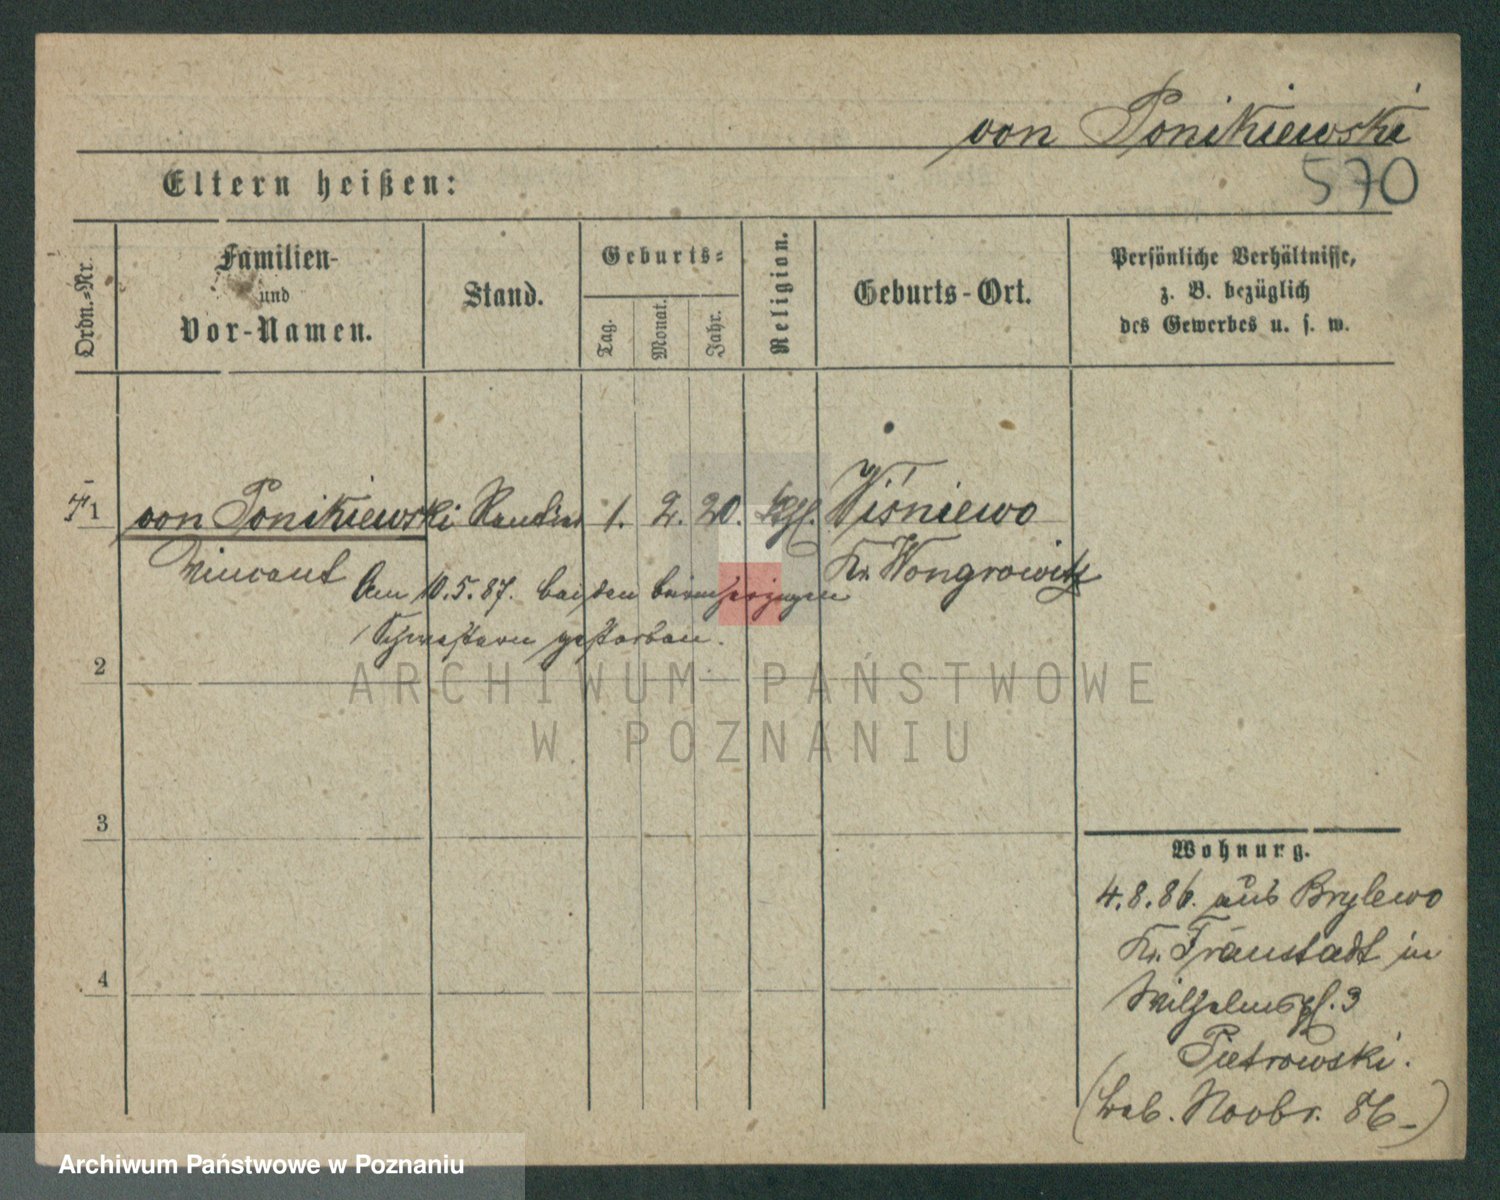 von Ponikiewski
570
Eltern heißen:
Ordn.-Nr.
Familien-
und
Vor-Namen.
Stand.
Geburts-
Tag.
Monat.
Jahr.
Religion.
Geburts-Ort.
Persönliche Verhältnisse,
z. B. bezüglich
des Gewerbes u. s. w.
1 von Ponikiewski Rentier 1. 2. 20. kgl. Wiśniewo
Vincent Kr. Wongrowitz
Am 10.5.87. bei den barmherzigen
Schwestern gestorben.
2
ARCHIWUM PAŃSTWOWE
W POZNANIU
3
Wohnung.
4.8.86. aus Brylewo
Kr. Fraustadt in
Wilhelmspl. 3
Pietrowski.
4
Novbr. 86
Archiwum Państwowe w Poznaniu